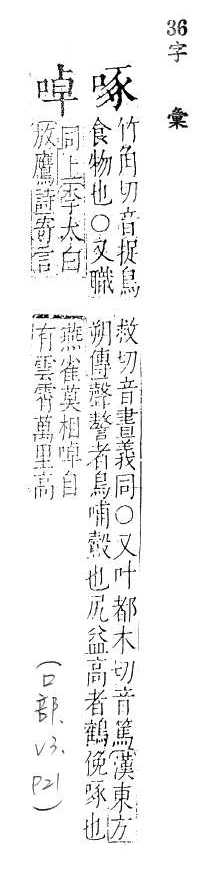 36字 彙
啄
竹角切音捉鳥
食物也○又職
救切音晝義同○又叶都木切音篤漢東方
朔傳聲謷者鳥哺鷇也尻益高者鶴俛啄也
啅
同上李太白
放鷹詩寄言
燕雀莫相啅自
有雲霄萬里高
(口部、v3. p21)